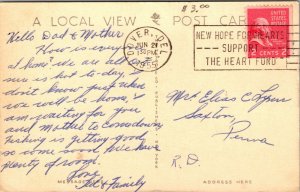 $3.00
A LOCAL VIEW POST CARD
DOVER, DEL.
JUN 21
1 30 PM
NEW HOPE FOR HEARTS
SUPPORT
THE HEART FUND
2 CENTS 2
Hello Dad & Mother
How is every
at home? we are all
is hot to-day, I
don't know just when
we will be home, I
am waiting for you
and Mother to come down
Fishing is getting good
so come soon We have
plenty of room.
Love
& Family
Mrs Elias C
Saxton
Penna
R.D
MESSAGE